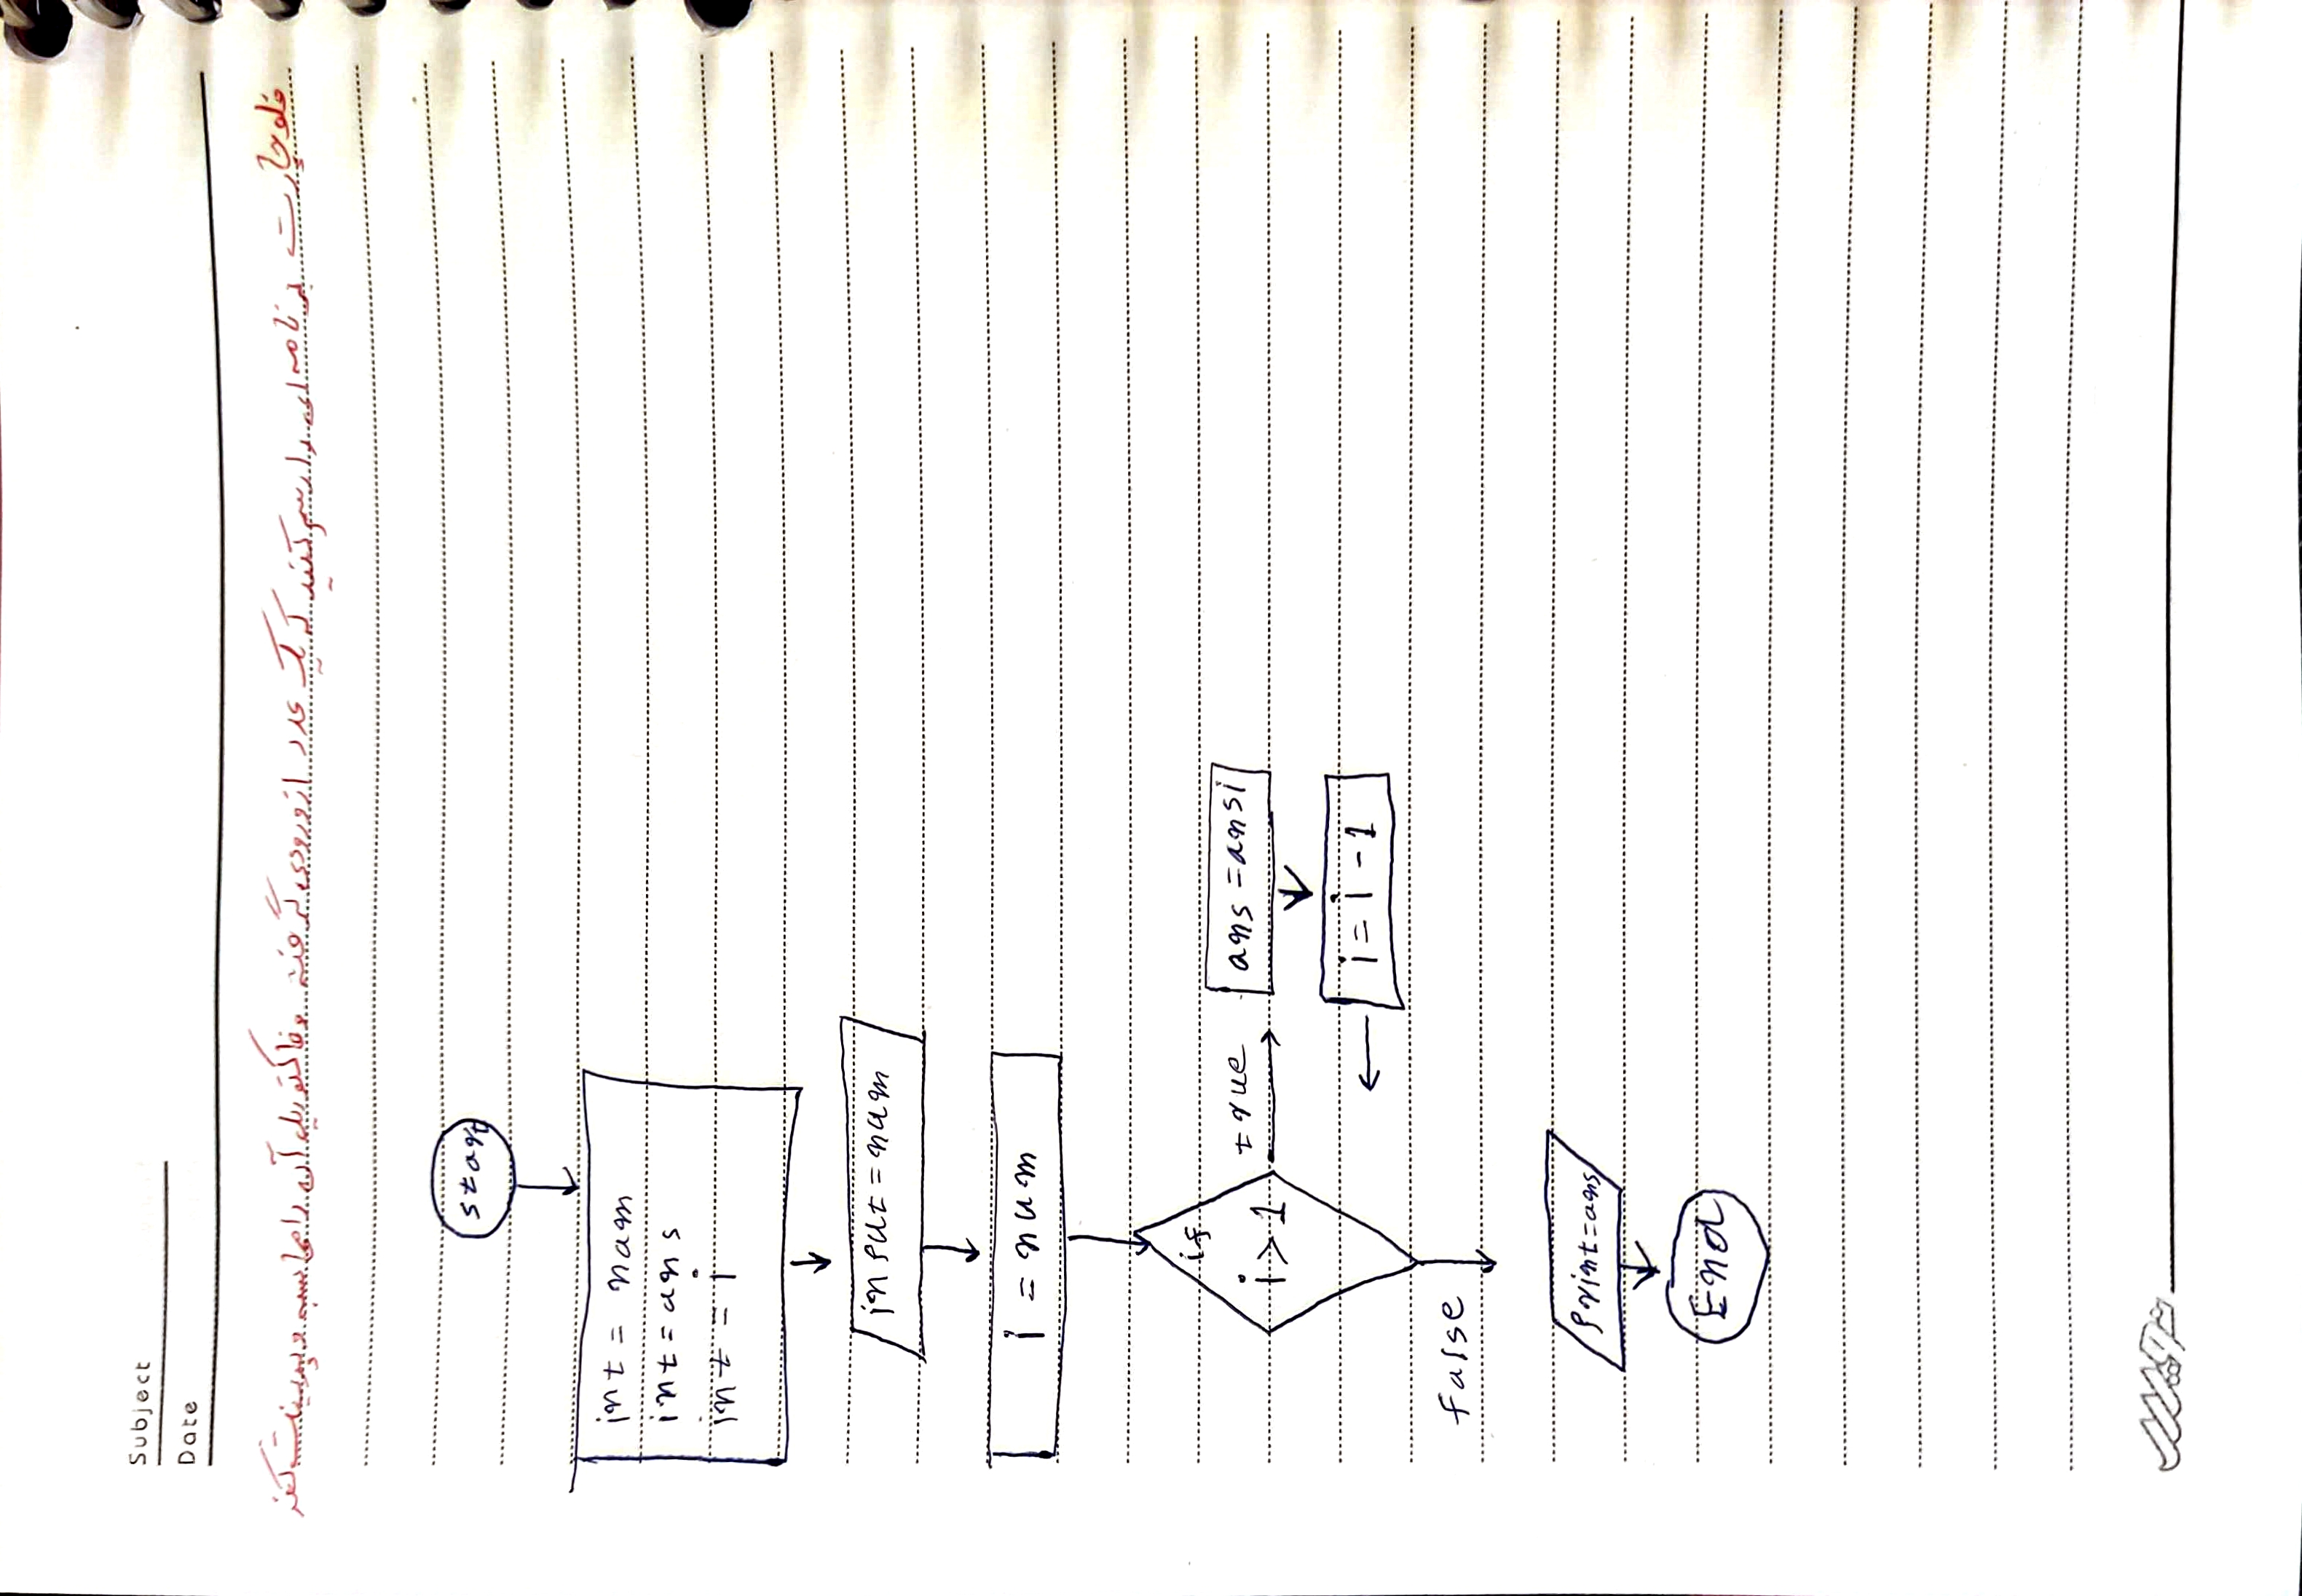 Subject
Date
فلوچارت برنامه ای را رسم کنید که یک عدد از ورودی گرفته و فاکتوریل آن را محاسبه و پرینت کند
start
int = num
int = ans
int = i
input = num
i = num
if
i > 1
true
ans = ansi
i = i - 1
false
print = ans
End